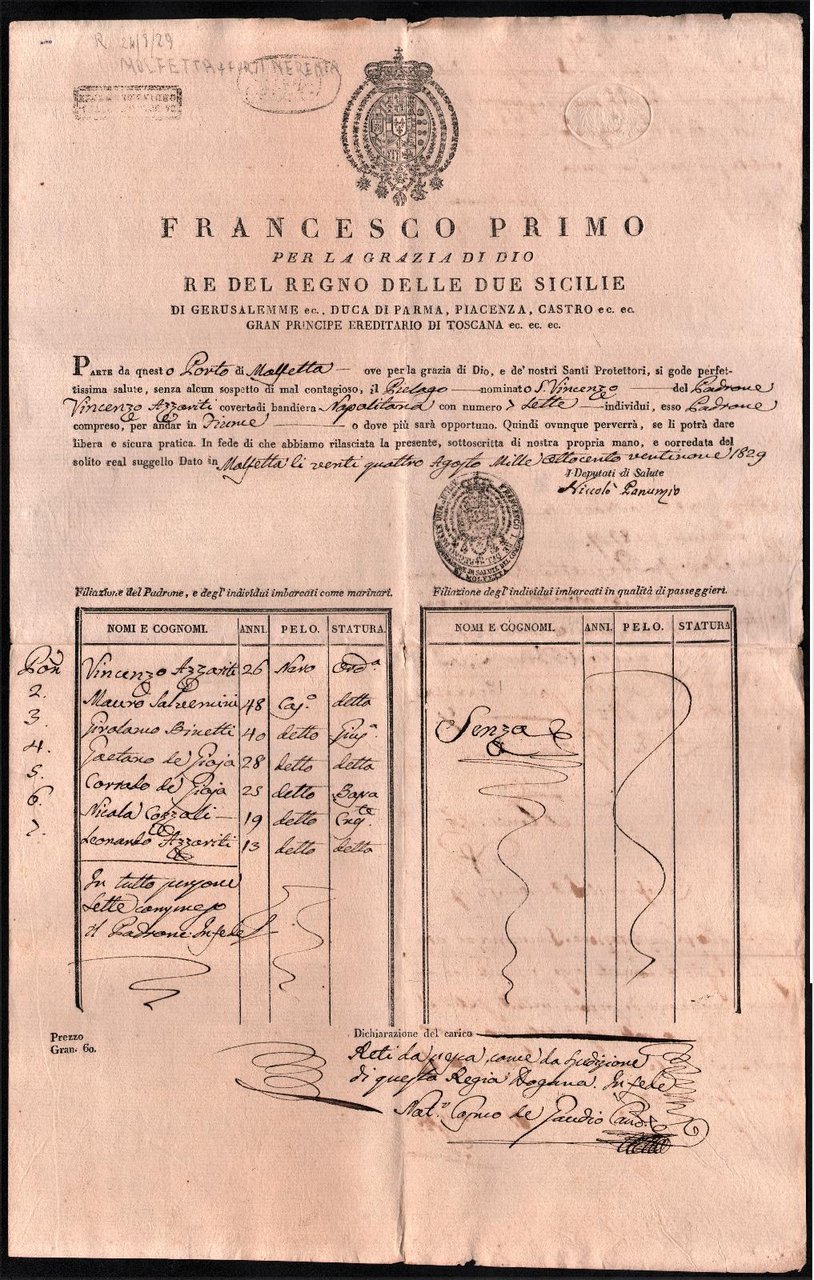 R 24/9/29
MOLFETTA
FRANCESCO PRIMO
PER LA GRAZIA DI DIO
RE DEL REGNO DELLE DUE SICILIE
DI GERUSALEMME ec., DUCA DI PARMA, PIACENZA, CASTRO ec. ec.
GRAN PRINCIPE EREDITARIO DI TOSCANA ec. ec. ec.
PARTE da questo Porto di Molfetta ove per la grazia di Dio, e de' nostri Santi Protettori, si gode perfet-
tissima salute, senza alcun sospetto di mal contagioso, il Pielago nominato S. Vincenzo del Padrone
Vincenzo Azzariti coverto di bandiera Napolitana con numero 7 Sette individui, esso Padrone
compreso, per andar in Fiume o dove più sarà opportuno. Quindi ovunque perverrà, se li potrà dare
libera e sicura pratica. In fede di che abbiamo rilasciata la presente, sottoscritta di nostra propria mano, e corredata del
solito real suggello Dato in Molfetta li venti quattro Agosto Mille Ottocento ventinove 1829
I Deputati di Salute
Niccolò Panunzio
MOLFETTA
Filiazione del Padrone, e degl'individui imbarcati come marinari.
NOMI E COGNOMI. ANNI. PELO. STATURA.
Pone Vincenzo Azzariti 26 Nero Orda
2. Mauro Salvemini 48 Cas.o detta
3. Girolamo Binetti 40 detto Gius.a
4. Gaetano de Gioja 28 detto detta
5. Corrado de Gioja 25 detto Bassa
6. Nicola Cozzoli 19 detto Cres.te
7. Leonardo Azzariti 13 detto detta
In tutto persone
Sette compreso
il Padrone. In fede
Filiazione degl'individui imbarcati in qualità di passeggieri.
NOMI E COGNOMI. ANNI. PELO. STATURA
Senza
Prezzo
Gran. 60.
Dichiarazione del carico
Reti da pesca, come da spedizione
di questa Regia Dogana. In fede
de Gaudio Canc.